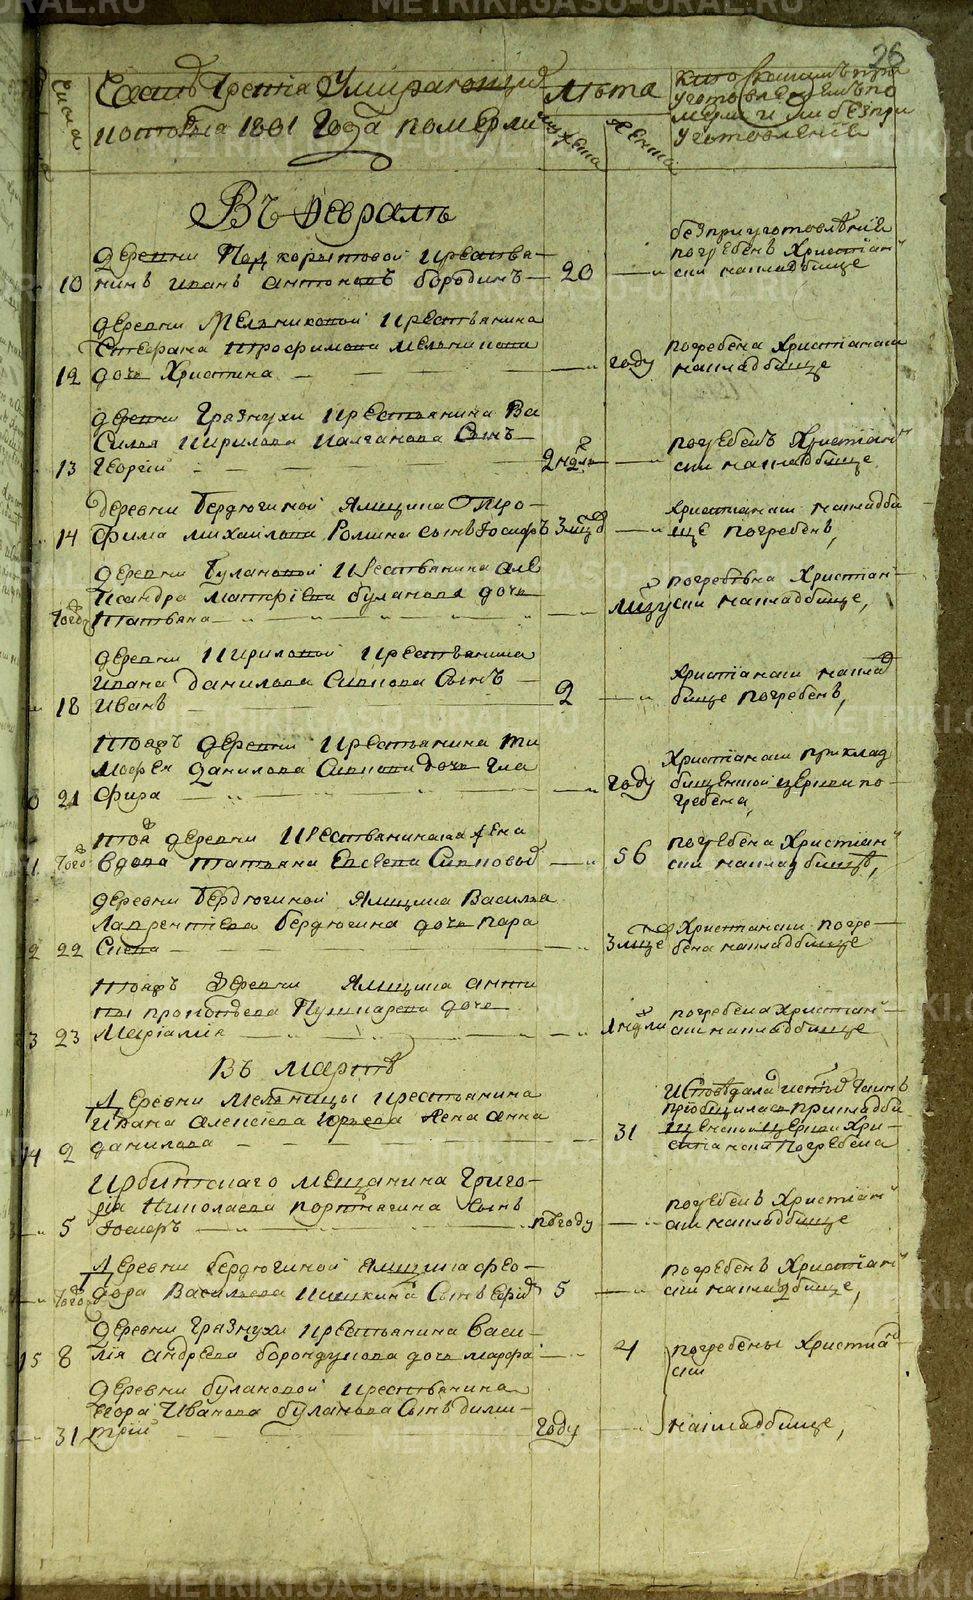 METRIKI.GASO-URAL.RU
26
Часть Третiя Умирающiй
которыя 1801 Года померли
Числа
Лѣта
мужеска
женска
безприуготовленiя
уготовленiе
Въ Февралѣ
деревни Подкорытовой крестья-
10 нинъ Иванъ Антоновъ Бородинъ 20
безприуготовленiя
погребенъ Христiан
ски накладбище
деревни Мельниковой крестьянина
Стефана Трофимова Мельникова
12 дочь Христина году
погребена Христiански
накладбище
деревни Грязнухи крестьянина Ва
силья Кирилова Калганова сынъ
13 Георгiй 2 ндль
погребенъ Христiан
ски накладбище
деревни Бердюгиной Ямщика Тро-
14 фима Михайлова Ромина сынъ Iосифъ 3 мцъ
Христiански накладби
ще погребенъ,
деревни Булановой крестьянина Але
ксандра Матфiева Буланова дочь
Тогож Татьяна мцу
погребена Христiан
ски накладбище,
деревни Кириловой крестьянина
Ивана Данилова Сивкова сынъ
18 Иванъ 2
Христiански наклад
бище погребенъ,
Тояжъ деревни крестьянина Ти
мофея Данилова Сивкова дочь Гла
21 фира году
Христiански приклад
бищенской церкви по-
гребена,
Тояж деревни крестьянина жена
Тогож вдова Татьяна Евсеева Сивковых 56
погребена Христiан
ски накладбищѣ,
деревни Бердюгиной Ямщика Василья
Лаврентiева Бердюгина дочь Пара
22 скева 3 мце
Христiански погре-
бена накладбище
Тояжъ деревни Ямщика
Пушкарева дочь
23 Марiамiя 1 ндли
погребена Христiан
ски накладбище
Въ мартѣ
Деревни Мельницы крестьянина
Ивана Алексiева Юрьева жена Анна
2 Данилова 31
Исповѣдана
прiобщилась прикладби
щенской церкви Хри-
стiански погребена
Ирбитскаго мещанина Григо-
рiя Николаева Портнягина сынъ
5 погоду
погребенъ Христiан
ски накладбище
Деревни Бердюгиной Ямщика Фео-
Тогож дора Васильева Кишкина сынъ 5
погребенъ Христiан
ски накладбище,
деревни Грязнухи крестьянина Васи-
15 8 лiя Андреева Борондукова дочь Марфа 4
погребены Христiа
ски
деревни Булановой крестьянина
Егора Иванова Буланова сынъ Дими-
31 трiй году
накладбище,
METRIKI.GASO-URAL.RU